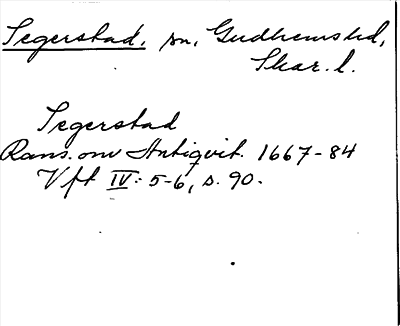 Segerstad, sn, Gudhems hd,
Skar. l.
Segerstad
Rans. om Antiqvit. 1667-84
Vft IV: 5-6, s. 90.